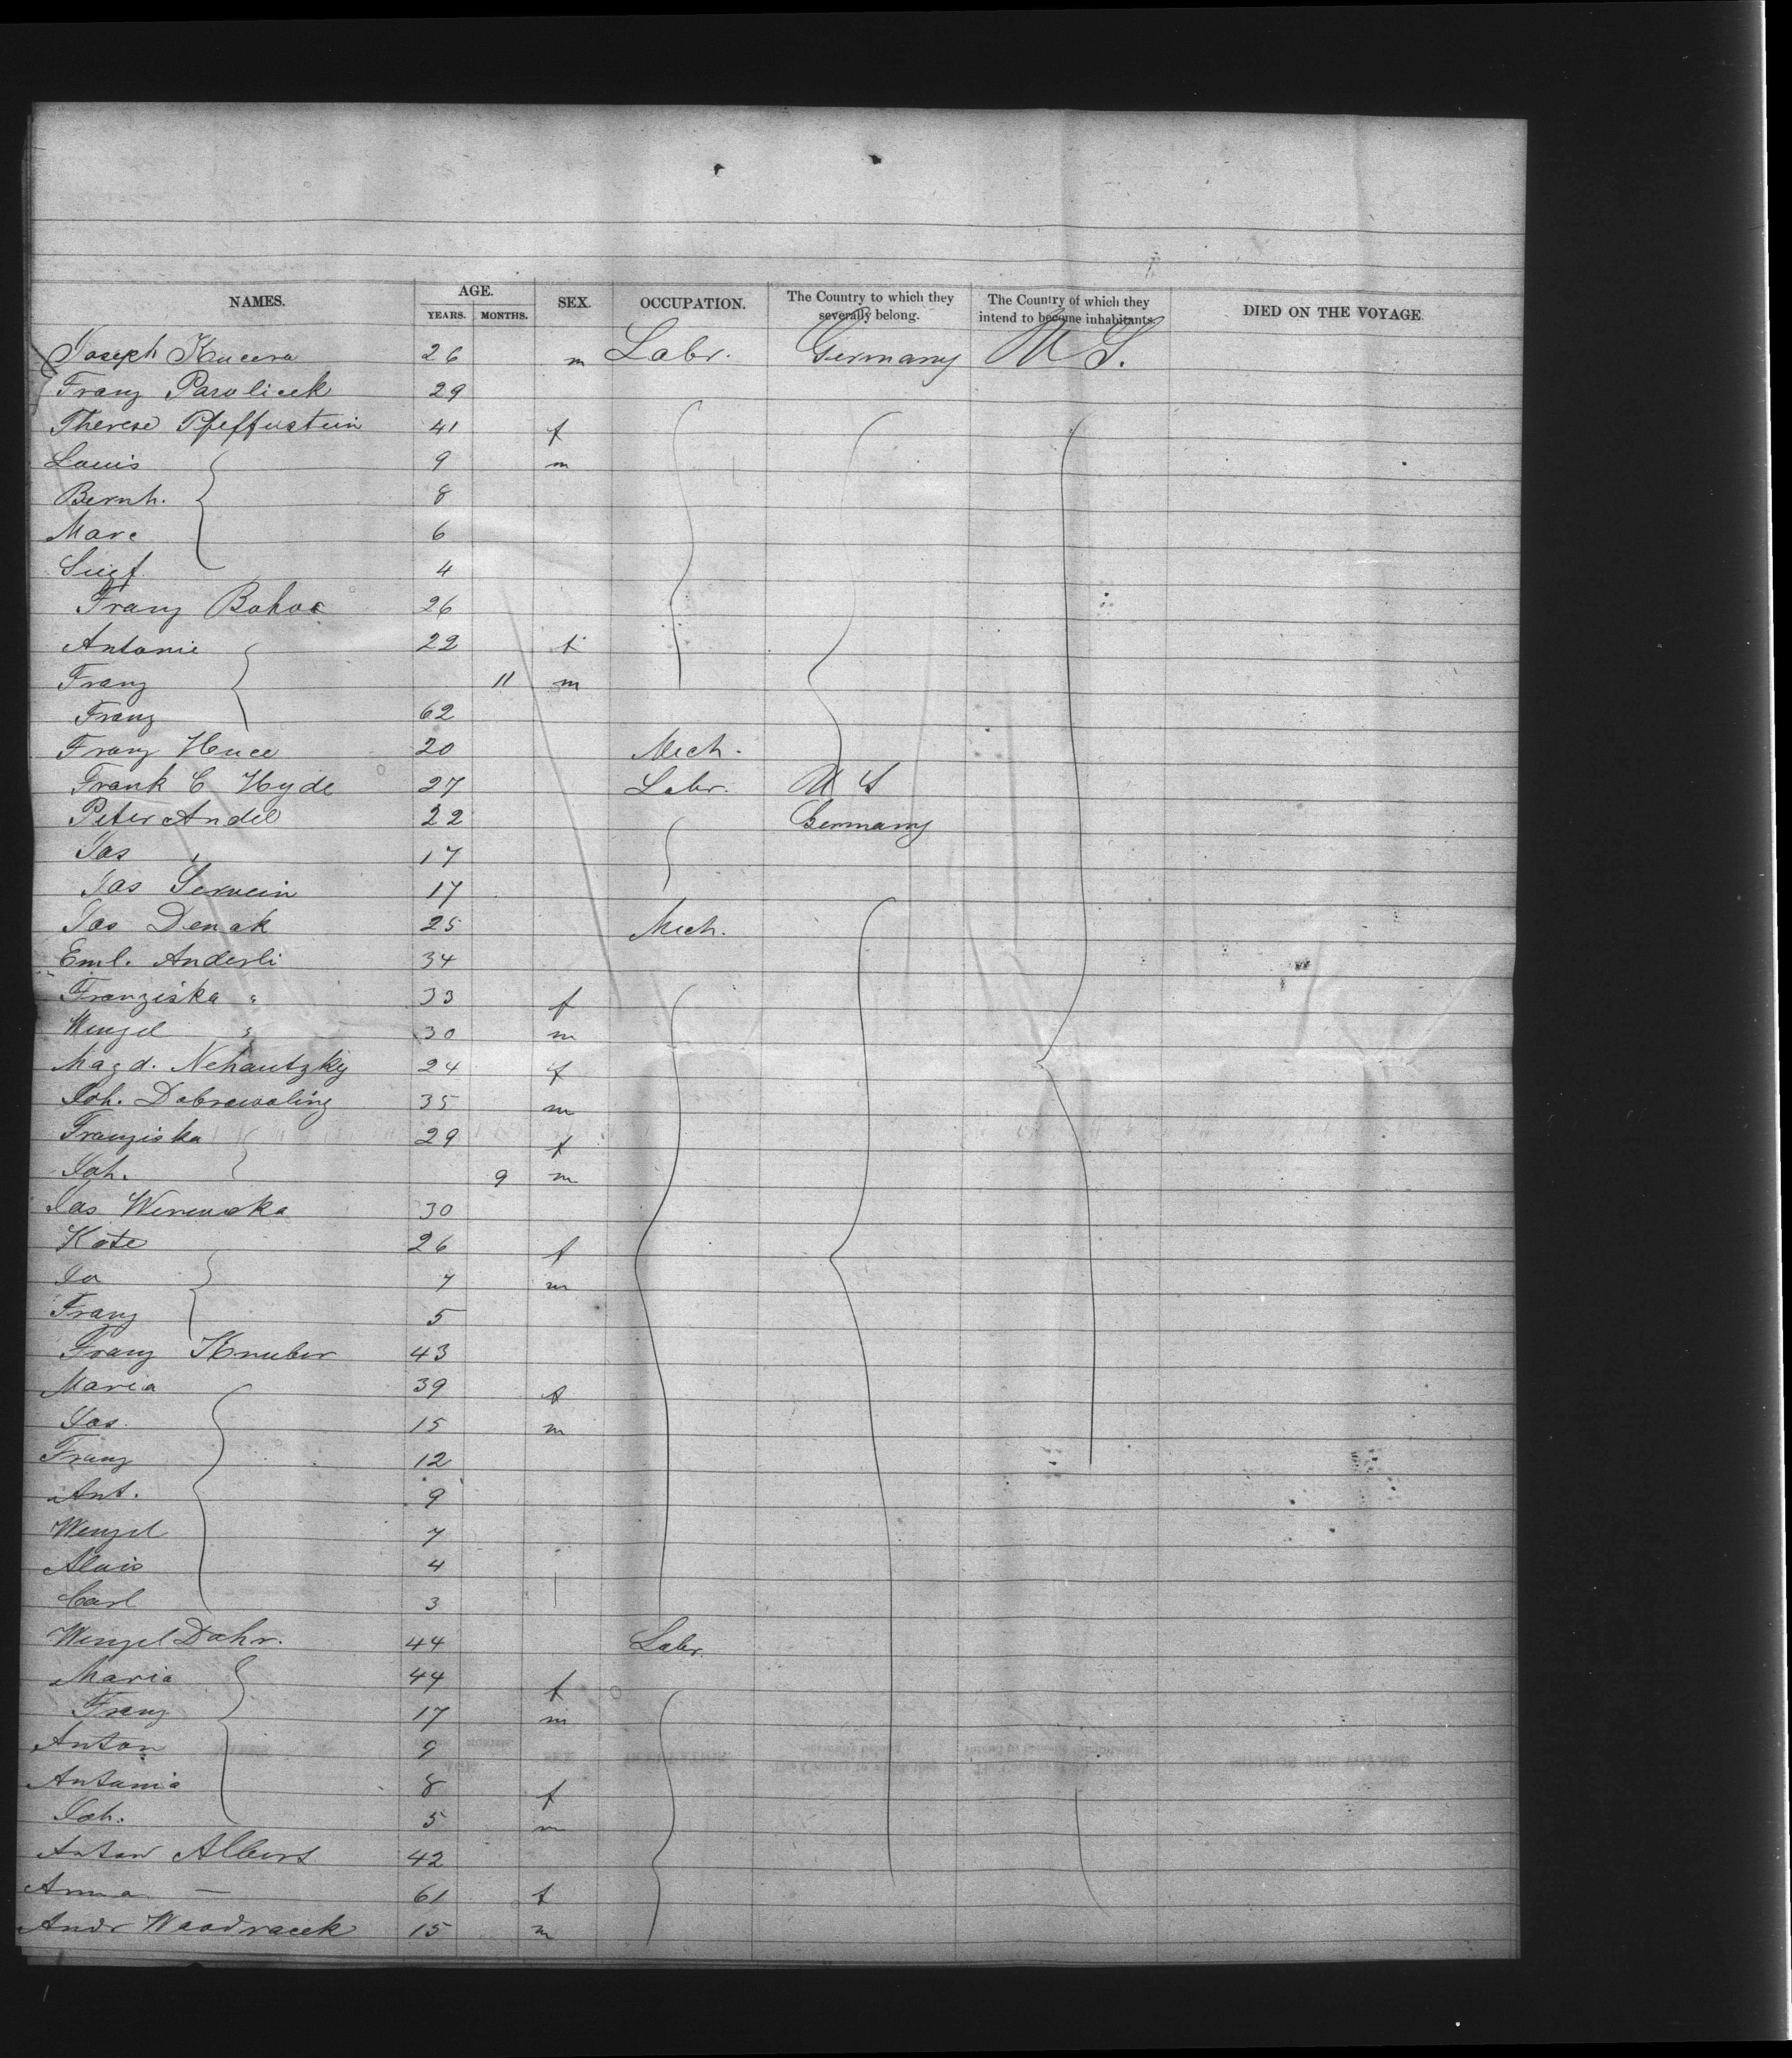 NAMES. AGE. SEX. OCCUPATION. The Country to which they severally belong. The Country of which they intend to become inhabitants. DIED ON THE VOYAGE.
YEARS. MONTHS.
Joseph Kucera 26 m Labr. Germany U S.
Franz Parolicek 29
Therese Pfefferstein 41 f
Louis 9 m
Bernh. 8
Marc 6
Sigf. 4
Franz Bohac 26
Antonie 22 f
Franz 11 m
Franz 62
Franz 20 Mech.
Frank C Hyde 27 Labr. U S
Peter Andel 22 Germany
Jos " 17
Jos 17
Jos Denak 25 Mech.
Eml. Anderli 34
Franziska " 33 f
Wenzel " 30 m
Magd. Nehautzky 24 f
Joh. 35 m
Franziska 29 f
Joh. 9 m
Jos 30
Kate 26 f
Jo 7 m
Franz 5
Franz Knuber 43
Maria 39 f
Jos. 15 m
Franz 12
Ant. 9
Wenzel 7
Alois 4
Carl 3
Wenzel Dahr. 44 Labr.
Maria 44 f
Franz 17 m
Anton 9
Antonia 8 f
Joh. 5 m
Anton Albert 42
Anna — 61 f
Andr Woodracek 15 m